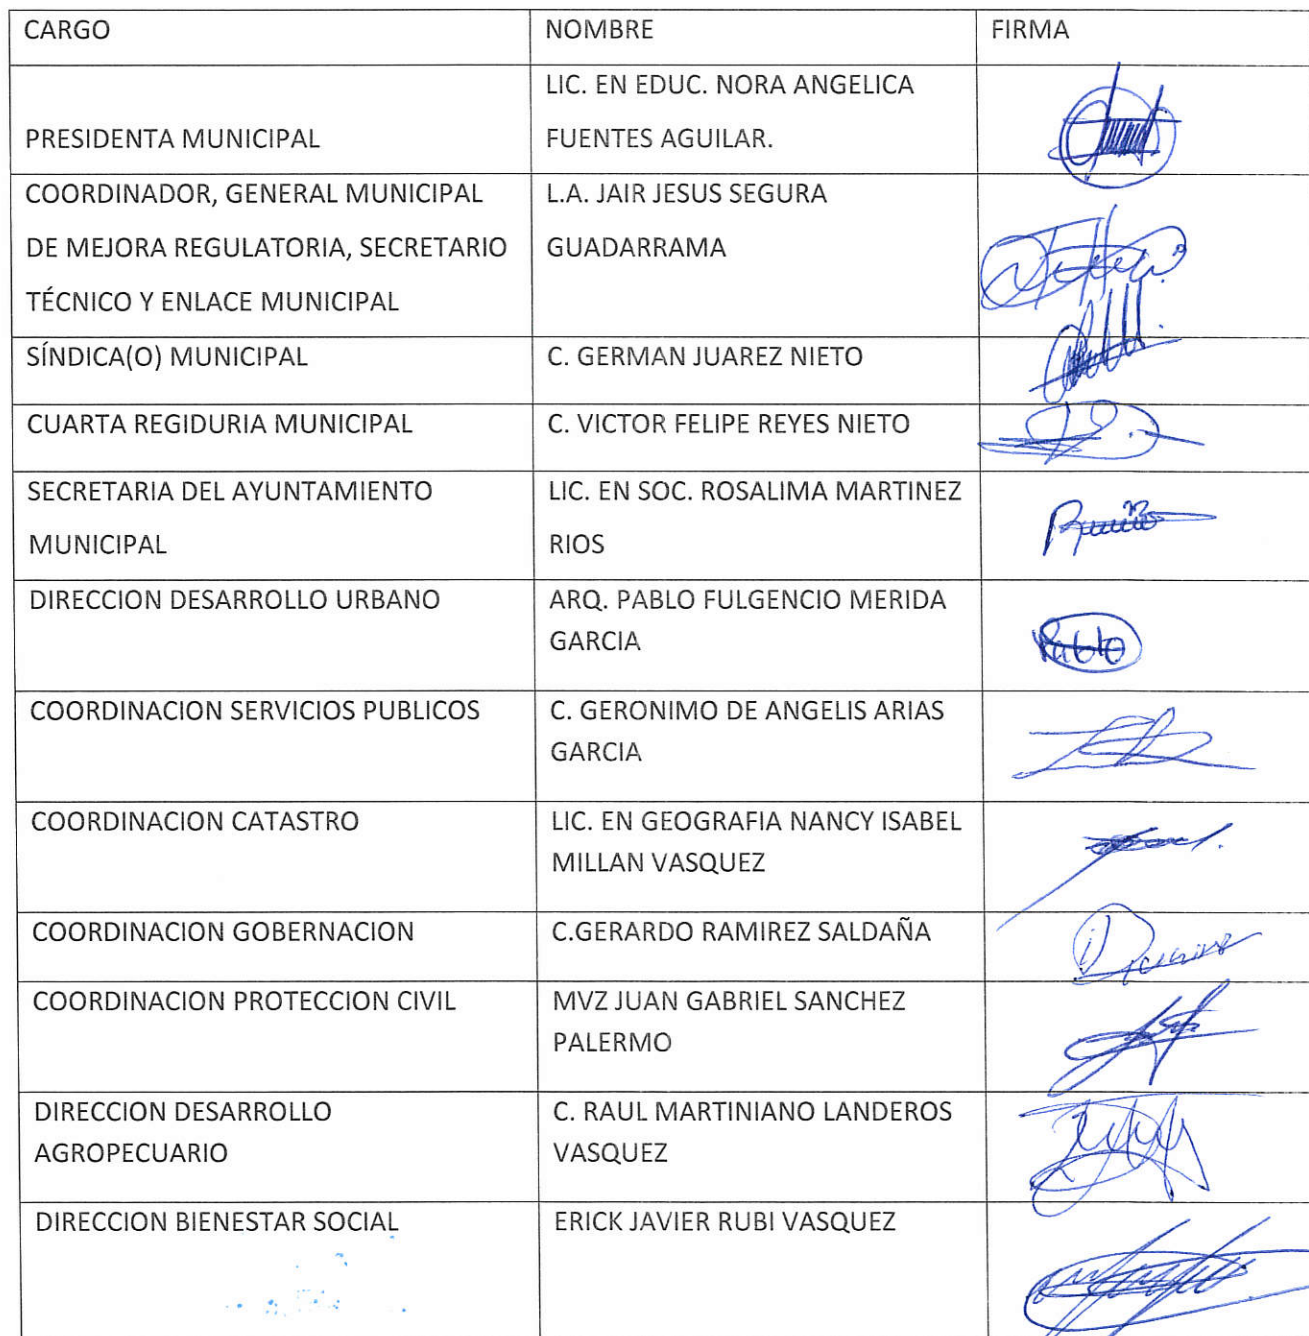 CARGO NOMBRE FIRMA
LIC. EN EDUC. NORA ANGELICA
PRESIDENTA MUNICIPAL FUENTES AGUILAR.
COORDINADOR, GENERAL MUNICIPAL L.A. JAIR JESUS SEGURA
DE MEJORA REGULATORIA, SECRETARIO GUADARRAMA
TÉCNICO Y ENLACE MUNICIPAL
SÍNDICA(O) MUNICIPAL C. GERMAN JUAREZ NIETO
CUARTA REGIDURIA MUNICIPAL C. VICTOR FELIPE REYES NIETO
SECRETARIA DEL AYUNTAMIENTO LIC. EN SOC. ROSALIMA MARTINEZ
MUNICIPAL RIOS
DIRECCION DESARROLLO URBANO ARQ. PABLO FULGENCIO MERIDA
GARCIA Pablo
COORDINACION SERVICIOS PUBLICOS C. GERONIMO DE ANGELIS ARIAS
GARCIA
COORDINACION CATASTRO LIC. EN GEOGRAFIA NANCY ISABEL
MILLAN VASQUEZ
COORDINACION GOBERNACION C.GERARDO RAMIREZ SALDAÑA
COORDINACION PROTECCION CIVIL MVZ JUAN GABRIEL SANCHEZ
PALERMO
DIRECCION DESARROLLO C. RAUL MARTINIANO LANDEROS
AGROPECUARIO VASQUEZ
DIRECCION BIENESTAR SOCIAL ERICK JAVIER RUBI VASQUEZ